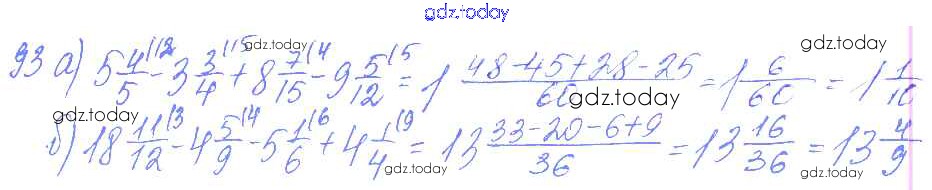 gdz.today
93 а) 5 4/5 |12 - 3 3/4 |15 + 8 7/15 |4 - 9 5/12 |5 = 1 (48-45+28-25)/60 = 1 6/60 = 1 1/10
gdz.today gdz.today gdz.today gdz.today
б) 18 11/12 |3 - 4 5/9 |4 - 5 1/6 |6 + 4 1/4 |9 = 13 (33-20-6+9)/36 = 13 16/36 = 13 4/9
gdz.today gdz.today